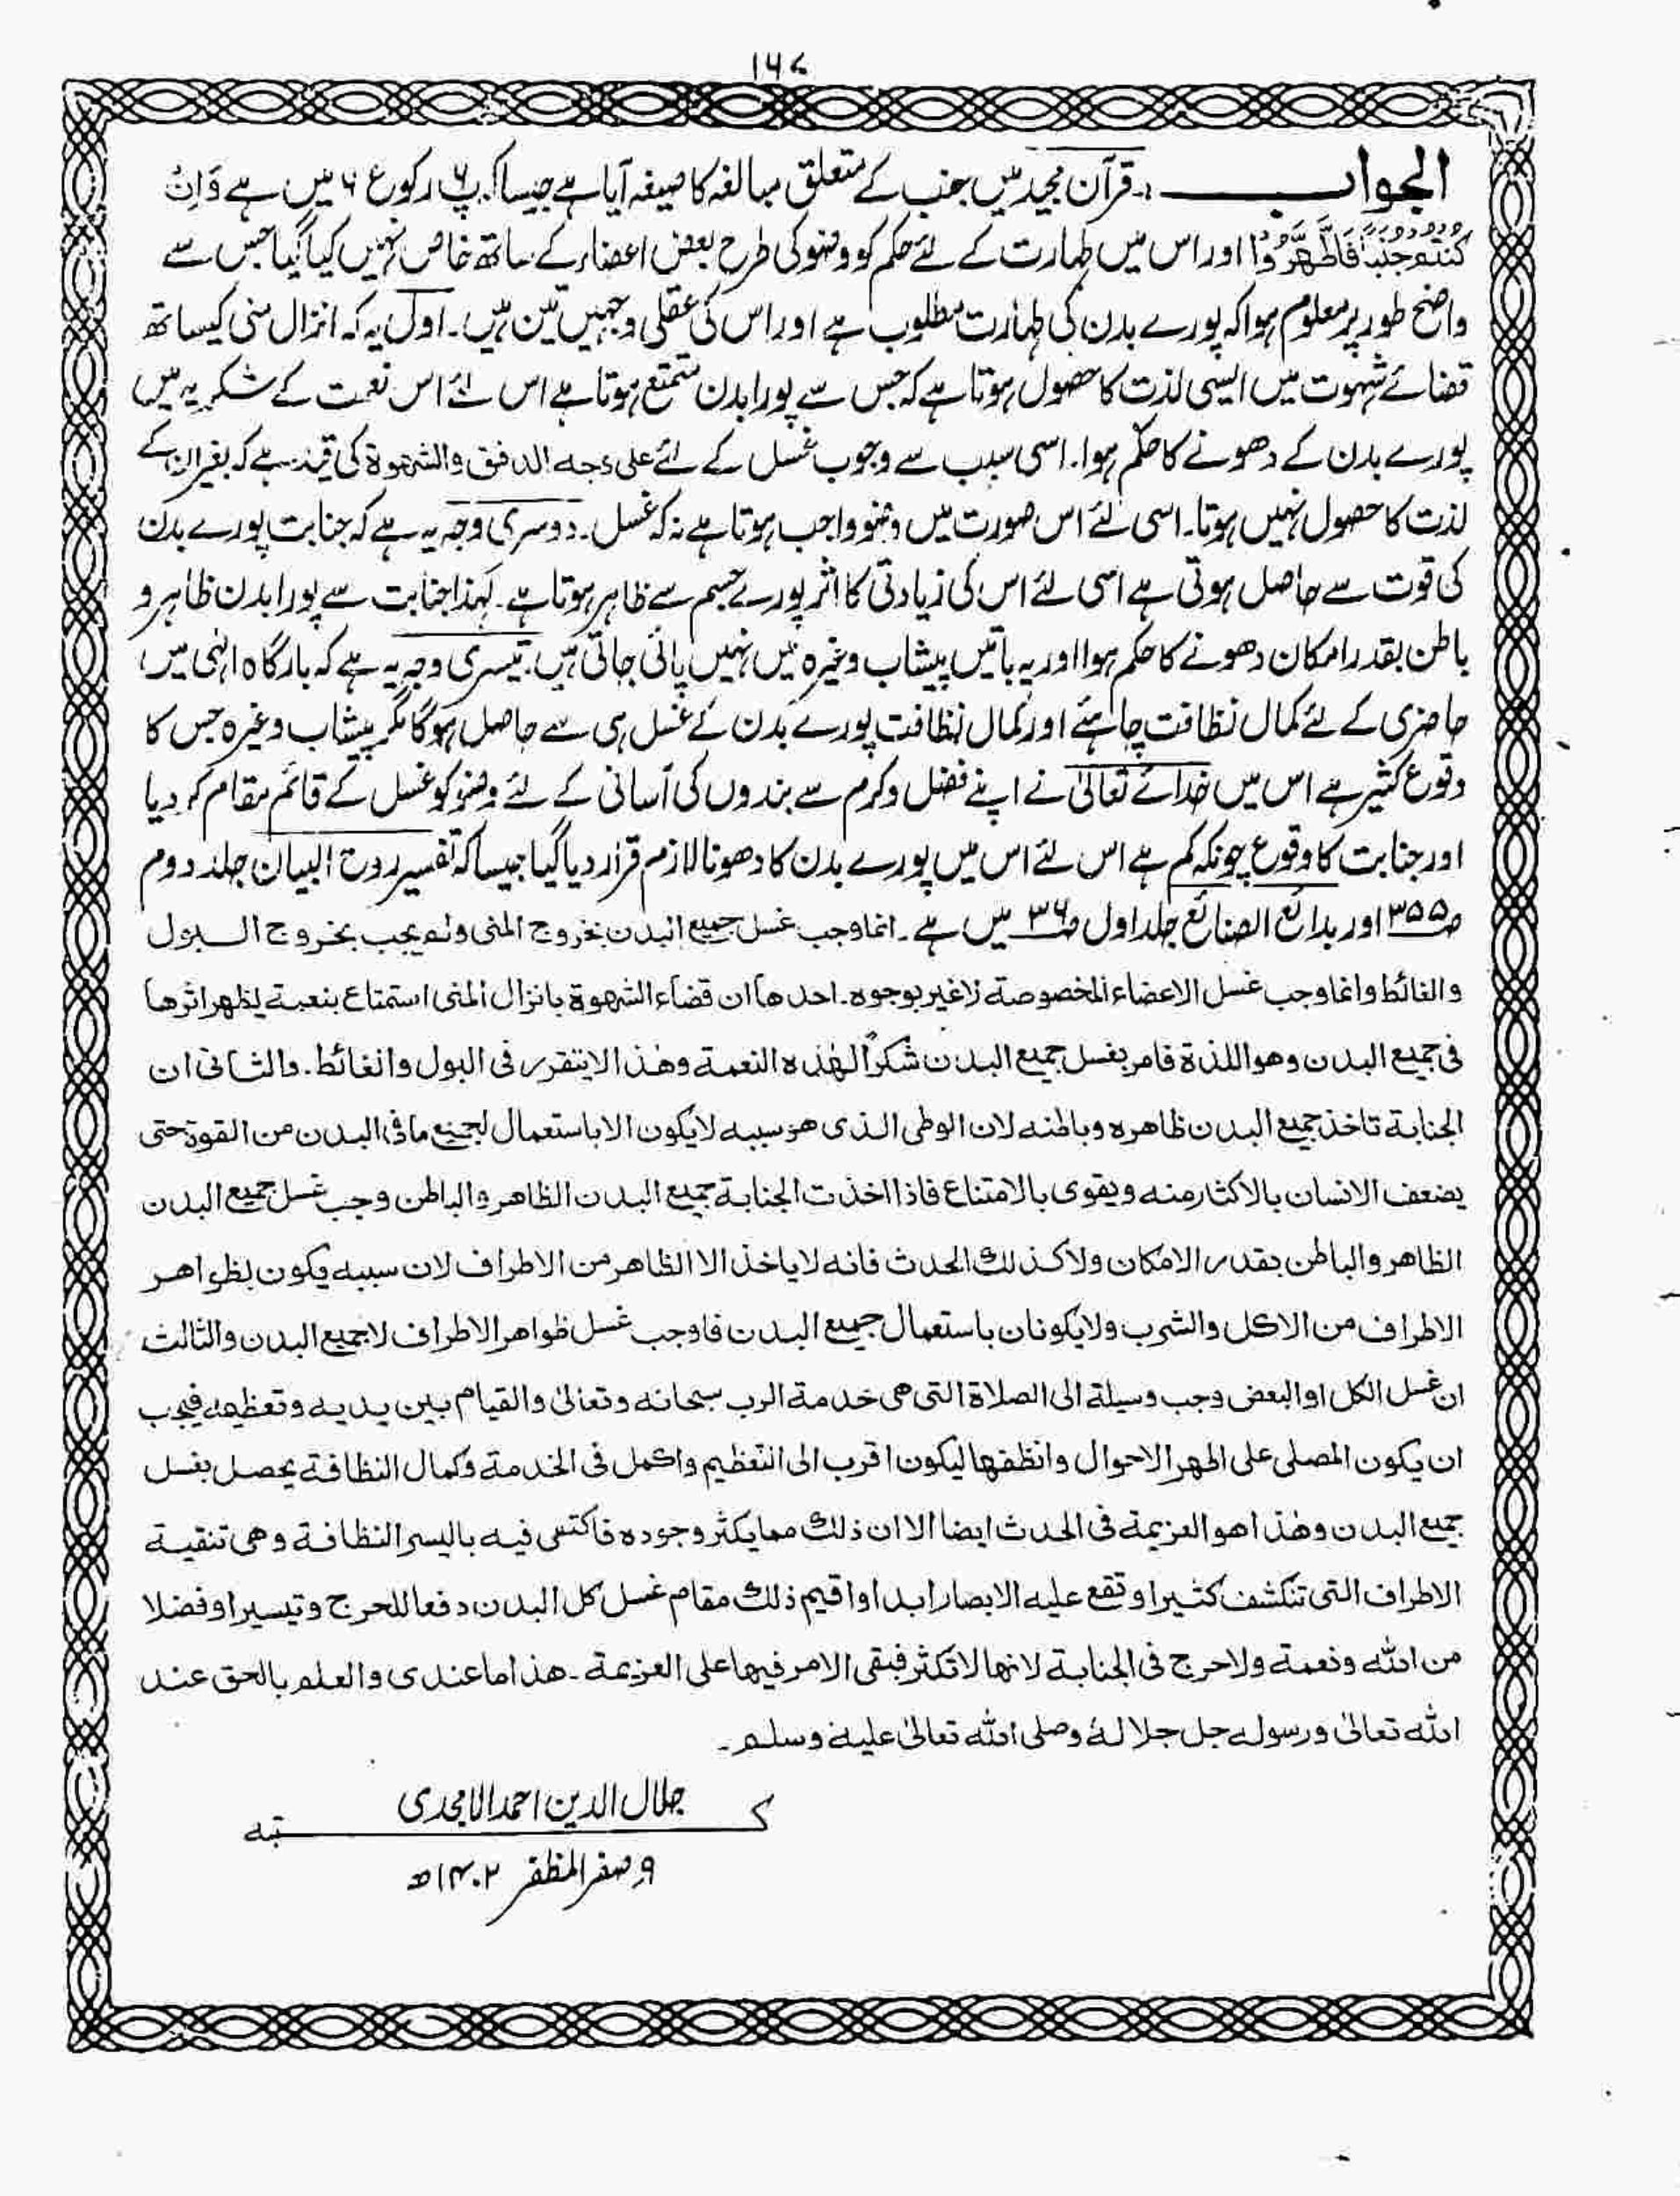 ۱۶۷
الجواب :۔ قرآن مجید میں جنب کے متعلق مبالغہ کا صیغہ آیا ہے جیسا کہ پ ۶ رکوع ۶ میں ہے وَاِنْ
كُنْتُمْ جُنُبًا فَاطَّهَّرُوْا اور اس میں طہارت کے لئے حکم کو وضو کی طرح بعض اعضاء کے ساتھ خاص نہیں کیا گیا جس سے
واضح طور پر معلوم ہوا کہ پورے بدن کی طہارت مطلوب ہے اور اس کی عقلی وجہیں تین ہیں۔ اول یہ کہ انزال منی کیساتھ
قضائے شہوت میں ایسی لذت کا حصول ہوتا ہے کہ جس سے پورا بدن متمتع ہوتا ہے اس لئے اس نعمت کے شکریہ میں
پورے بدن کے دھونے کا حکم ہوا۔ اسی سبب سے وجوب غسل کے لئے علی وجہ الدفق والشہوۃ کی قید ہے کہ بغیر ان کے
لذت کا حصول نہیں ہوتا۔ اسی لئے اس صورت میں وضو واجب ہوتا ہے نہ کہ غسل۔ دوسری وجہ یہ ہے کہ جنابت پورے بدن
کی قوت سے حاصل ہوتی ہے اسی لئے اس کی زیادتی کا اثر پورے جسم سے ظاہر ہوتا ہے۔ لہٰذا جنابت سے پورا بدن ظاہر و
باطن بقدر امکان دھونے کا حکم ہوا اور یہ باتیں پیشاب وغیرہ میں نہیں پائی جاتی ہیں۔ تیسری وجہ یہ ہے کہ بارگاہ الٰہی میں
حاضری کے لئے کمال نظافت چاہئے اور کمال نظافت پورے بدن کے غسل ہی سے حاصل ہوگا مگر پیشاب وغیرہ جس کا
وقوع کثیر ہے اس میں خدائے تعالیٰ نے اپنے فضل و کرم سے بندوں کی آسانی کے لئے وضو کو غسل کے قائم مقام کر دیا
اور جنابت کا وقوع چونکہ کم ہے اس لئے اس میں پورے بدن کا دھونا لازم قرار دیا گیا جیسا کہ تفسیر روح البیان جلد دوم
ص ۳۵۵ اور بدائع الصنائع جلد اول ص ۳۶ میں ہے۔ انما وجب غسل جمیع البدن بخروج المنی ولم یجب بخروج البول
والغائط وانما وجب غسل الاعضاء المخصوصة لا غیر بوجوہ۔ احدها ان قضاء الشهوة بانزال المنی استمتاع بنعمة یظهر اثرها
فی جمیع البدن وهو اللذة فامر بغسل جمیع البدن شکراً لهٰذہ النعمة وهٰذا لا یتقرر فی البول والغائط۔ والثانی ان
الجنابة تاخذ جمیع البدن ظاهره وباطنه لان الوطی الذی هو سببه لا یکون الا باستعمال لجمیع ما فی البدن من القوة حتی
یضعف الانسان بالاکثار منه ویقوی بالامتناع فاذا اخذت الجنابة جمیع البدن الظاهر والباطن وجب غسل جمیع البدن
الظاهر والباطن بقدر الامکان ولا کذلك الحدث فانه لا یاخذ الا الظاهر من الاطراف لان سببه یکون بظواهر
الاطراف من الاکل والشرب ولا یکونان باستعمال جمیع البدن فاوجب غسل ظواهر الاطراف لا جمیع البدن والثالث
ان غسل الکل او البعض وجب وسیلة الی الصلاة التی هی خدمة الرب سبحانه وتعالیٰ والقیام بین یدیه وتعظیمه فیجب
ان یکون المصلی علی اطهر الاحوال وانظفها لیکون اقرب الی التعظیم واکمل فی الخدمة وکمال النظافة یحصل بغسل
جمیع البدن وهٰذا هو العزیمة فی الحدث ایضا الا ان ذلك مما یکثر وجوده فاکتفی فیه بالیسر النظافة وهی تنقیة
الاطراف التی تنکشف کثیرا وتقع علیه الابصار ابدا واقیم ذلك مقام غسل کل البدن دفعا للحرج وتیسیرا وفضلا
من الله ونعمة ولا حرج فی الجنابة لانها لا تکثر فبقی الامر فیها علی العزیمة۔ هذا ما عندی والعلم بالحق عند
الله تعالیٰ ورسوله جل جلالهٗ وصلی الله تعالیٰ علیه وسلم۔
جلال الدین احمد الامجدی
کتبہ
۹ صفر المظفر ۱۴۰۲ھ